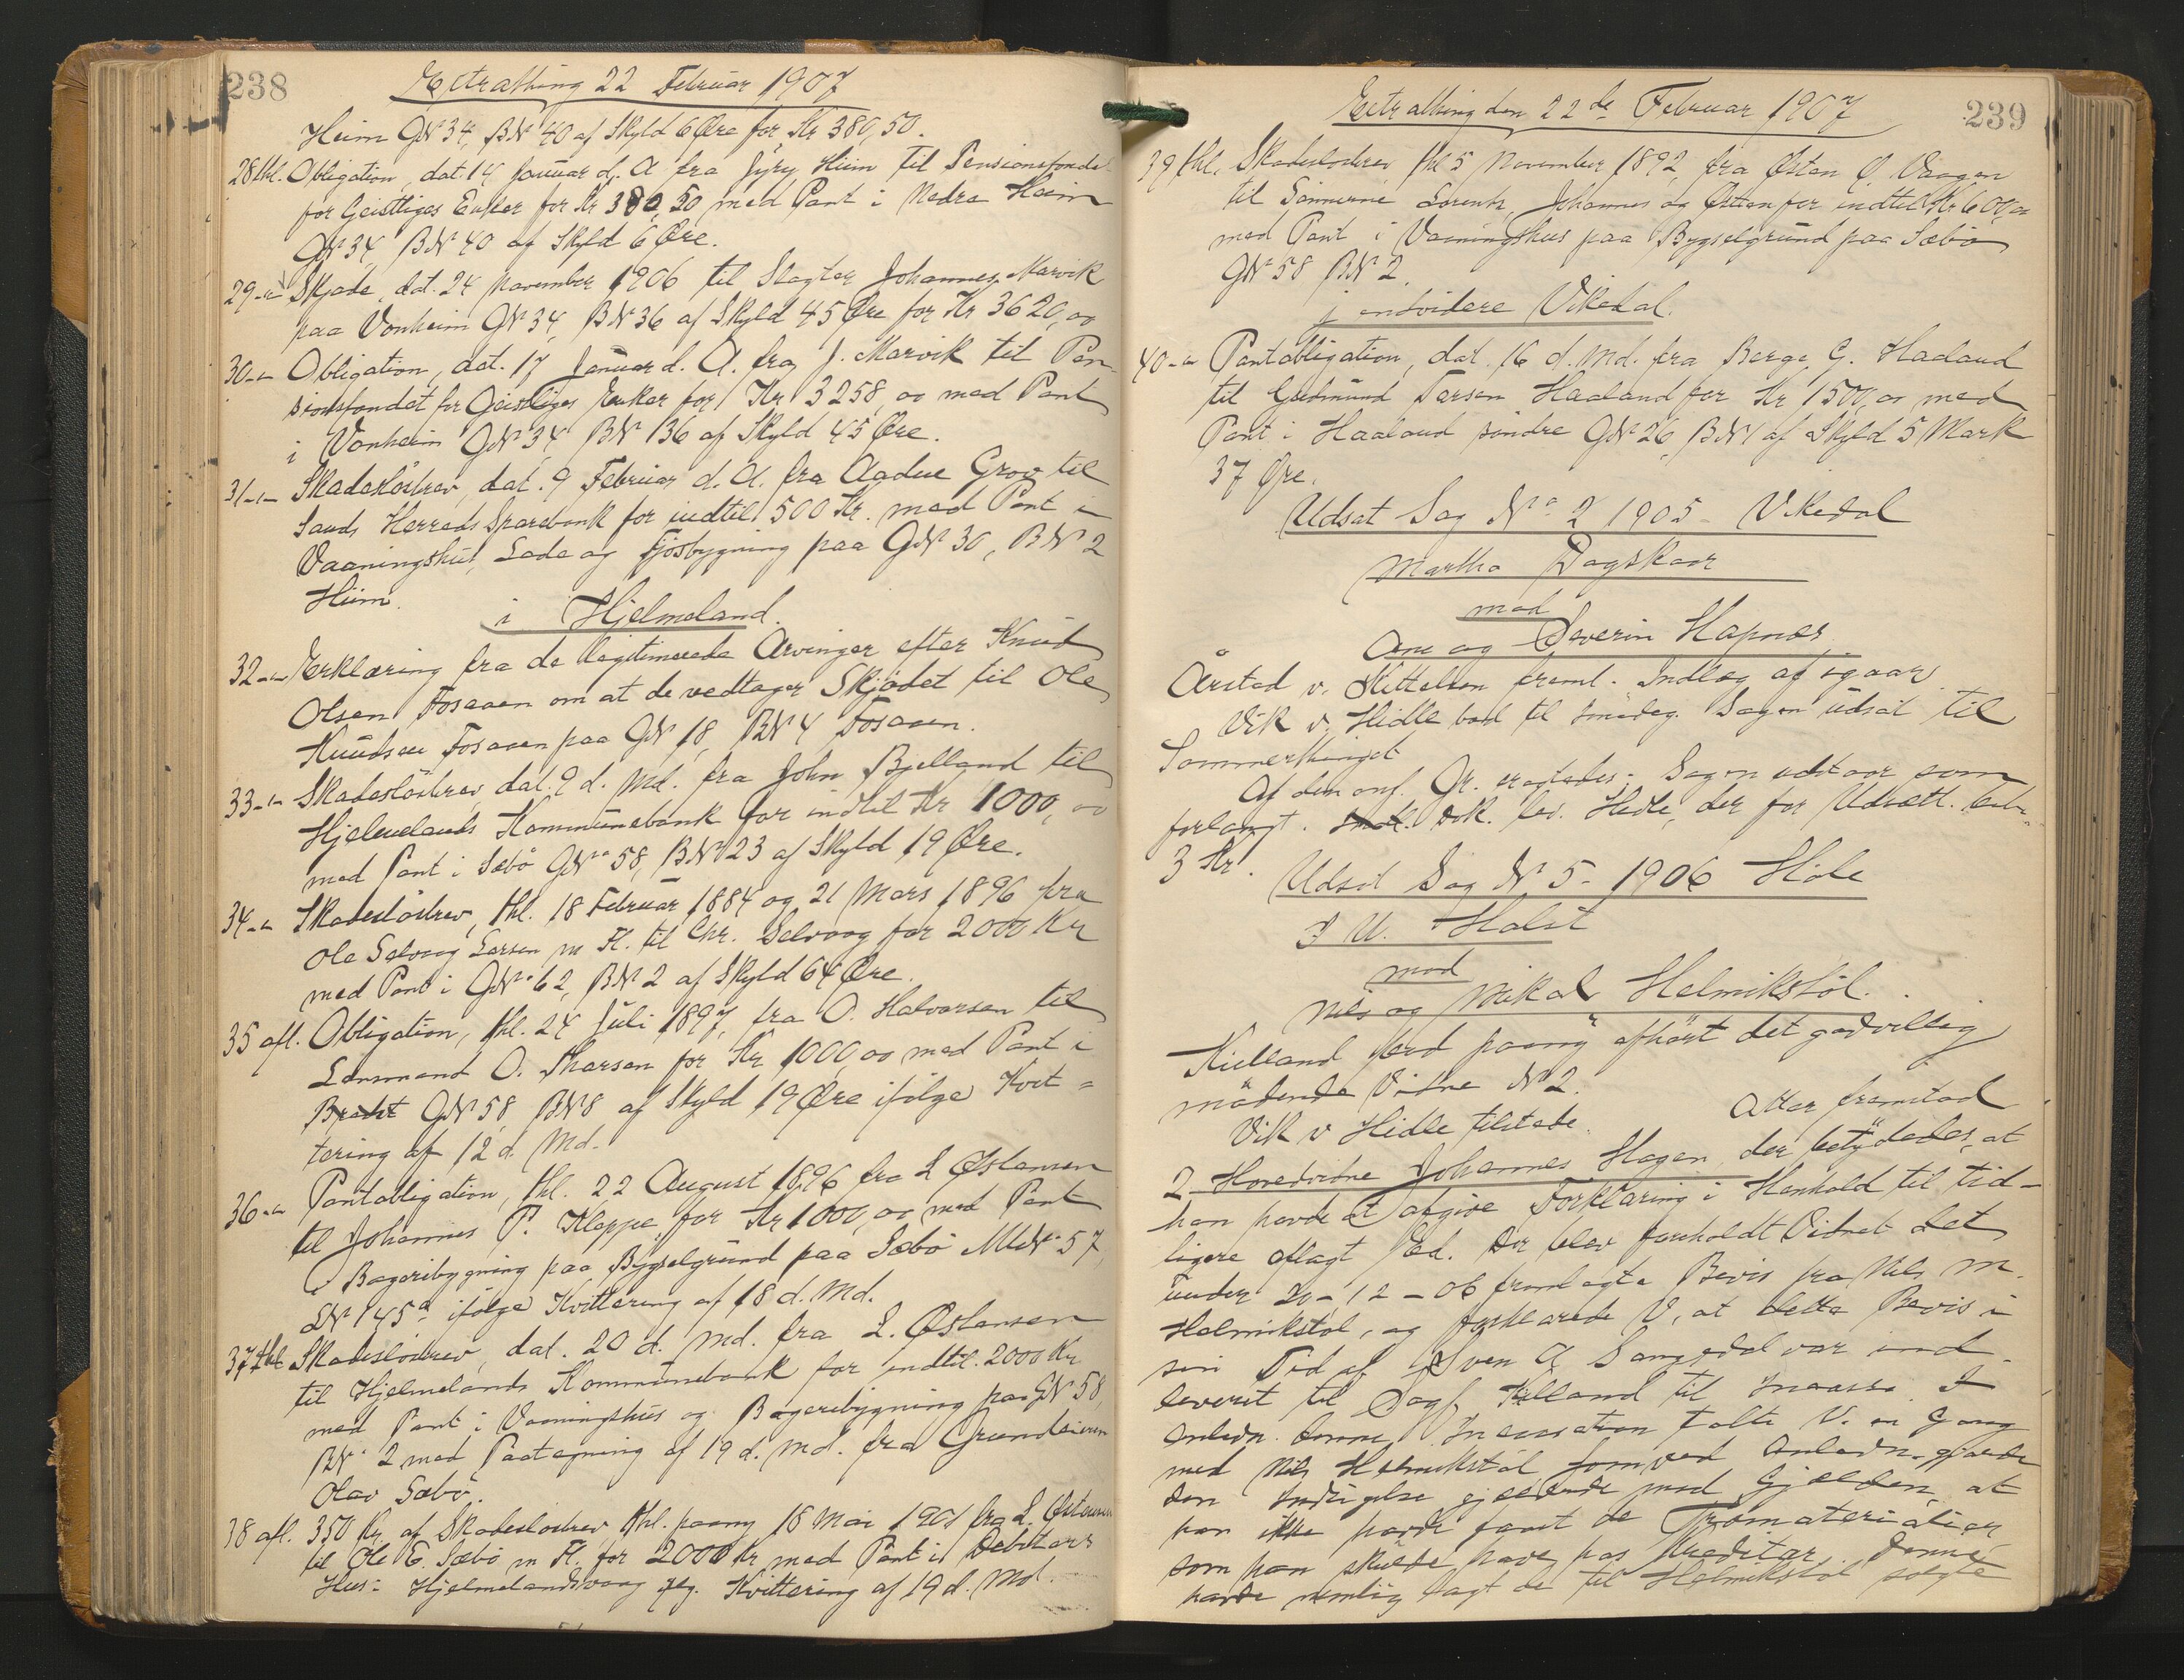 238
Extrathing 22 Februar 1907
Heim GN 34, BN 40 af Skyld 6 Øre for Kr 380,50.
28 thl. Obligation, dat. 14 Januar d. A fra Jyry Heim til Pensionsfondet
for Geistliges Enker for Kr 380,50 med Pant i Nedre Heim
GN 34 BN 40 af Skyld 6 Øre.
29-"- Skjøde, dat. 24 November 1906 til Slagter Johannes Marvik
paa Vonheim GN 34, BN 36 af Skyld 45 Øre for Kr 3620,00
30-"- Obligation, dat. 17 Januar d. A. fra J. Marvik til Pen-
sionsfondet for Geistliges Enker for Kr 3258,00 med Pant
i Vonheim GN 34 BN 36 af Skyld 45 Øre.
31-"- Skadesløsbrev, dat. 9 Februar d. A. fra Aadne Grov til
Sands Herreds Sparebank for indtil 500 Kr. med Pant i
Vaaningshus, Lade og Fjøsbygning paa GN 30, BN 2
Hiim.
i Hjelmeland.
32-"- Erklæring fra de legitimerede Arvinger efter Knud
Olsen Fosaaen om at de vedtager Skjødet til Ole
Knudsen Fosaaen paa GN 18, BN 4 Fosaaen.
33-"- Skadesløsbrev, dat. 9 d. Md. fra John Bjelland til
Hjelmelands Kommunebank for indtil Kr 1000,00
med Pant i Sæbø GN 58, BN 23 af Skyld 19 Øre.
34-"- Skadesløsbrev, thl. 18 Februar 1884 og 21 Mars 1896 fra
Ole Selvaag Larsen m Fl. til Chr. Selvaag for 2000 Kr
med Pant i GN 62, BN 2 af Skyld 64 Øre.
35 afl. Obligation, thl. 24 Juli 1897, fra O. Halvorsen til
Lensmand O. Tharsen for Kr 1000,00 med Pant i
GN 58, BN 8 af Skyld 19 Øre ifølge Kvit=
tering af 12 d. Md.
36-"- Pantobligation, thl. 22 August 1896 fra L Østensen
til Johannes P. Kleppe for Kr 1000,00 med Pant
i Bageribygning paa Bygselgrund paa Sæbø MN 57,
LN 145a ifølge Kvittering af 18 d. Md.
37 thl Skadesløsbrev, dat. 20 d. Md. fra L. Østensen
til Hjelmelands Kommunebank for indtil 2000 Kr
med Pant i Vaaningshus og Bageribygning paa GN 58,
BN 2 med Paategning af 19 d. Md. fra Grundeieren
Olav Sæbø.
38 afl. 350 Kr af Skadesløsbrev thl. paany 18 Mai 1901 fra L. Østensen
til Ole E. Sæbø m Fl. for 2000 Kr med Pant i Debitors
Hus i Hjelmelandsvaag iflg. Kvittering af 19 d. Md.
Extrathing den 22de Februar 1907
239
39 thl. Skadesløsbrev, thl 5 November 1892, fra Østen O. Vaagen
til Sønnerne Lorents, Johannes og Østen for indtil Kr 600,00
med Pant i Vaaningshus paa Bygselgrund paa Sæbø
GN 58 BN 2.
i Vikedal.
40-"- Pantobligation, dat. 16 d. Md. fra Berge G. Haaland
til Gudmund Larsen Haaland for Kr 1500,00 med
Pant i Haaland søndre GN 26, BN 1 af Skyld 5 Mark
37 Øre.
Udsat Sag No 2 1905 - Vikedal
Martha Dagskaar
mod
Ane og Severin Hapnes
Årstad v. Kittelsen freml. Indlæg af igaar.
Vik v. Hidle bad til Imødeg. Sagen udsat til
Sommerthinget
Af den anf. Gr. eragtedes: Sagen udstaar som
forlangt. Dok. lev. Hidle, der for Udsætt. bet.
3 Kr.
Udsat Sag N 5 - 1906 Høle
Holst
mod
Nils og Mikal Helmikstøl.
Kielland fovd paany afhørt det godvillig
mødende Vidne N 2.
Vik v Hidle tilstede.
Atter fremstod
2. Hovedvidne Johannes Hagen, der betydedes, at
han havde at afgive Forklaring i Henhold til tid-
ligere aflagt Ed. Der blev foreholdt Vidnet det
under 20-12-06 fremlagte Bevis fra Nils M.
Helmikstøl, og forklarede V, at dette Bevis i
sin Tid af Sven A Sangedal var ind-
leveret til Sagf. Kielland til Incasso. I
Anledn. denne Incassation talte V. en Gang
med Nils Helmikstøl som ved Anledn. gjorde
den Indsigelse gjældende mod Gjælden, at
han ikke havde faaet de Træmaterialier
som han skulde have hos Kreditor. Denne
havde nemlig sagt de til Helmikstøl solgte